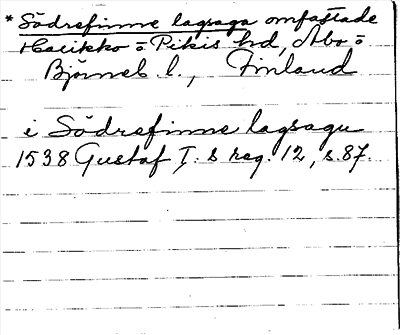 * Södrefinne lagsaga omfattade
Halikko o Pikis hd, Åbo o
Björneb. l., Finland
i Södrefinne lagsagu
1538 Gustaf I:s reg. 12, s. 87.